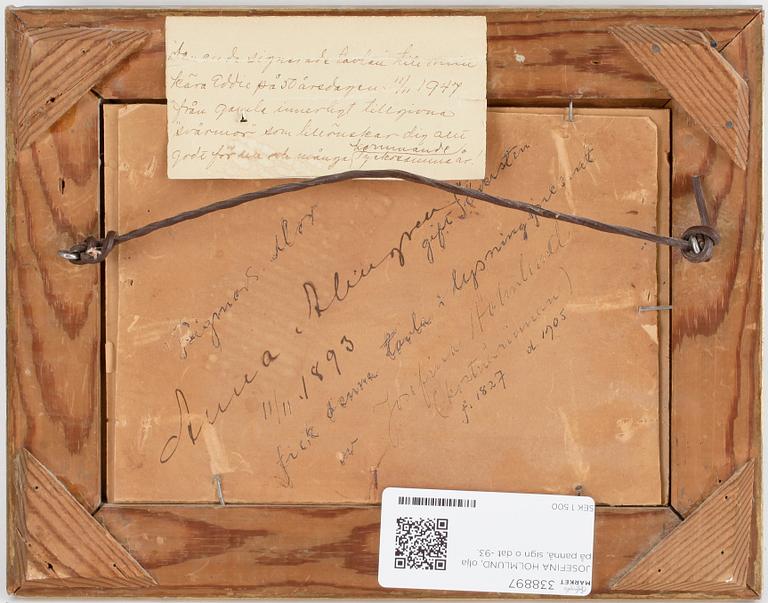 signerade tavlan till min
kära Eddie på 50 årsdagen 11/11 1947
från gamla innerligt tillgivna
svärmor som tillönskar dig allt
godt för den och många kommande
lyckosamma år!
Sigmars Mor
Anna Almgren gift
11/11 1893
fick denna tavla i lysningspresent
av Josefina Holmlund
(konstnärinnan)
f. 1827 d 1905
338897
MARKET
JOSEFINA HOLMLUND, olja
på pannå, sign o dat -93.
SEK 1 500